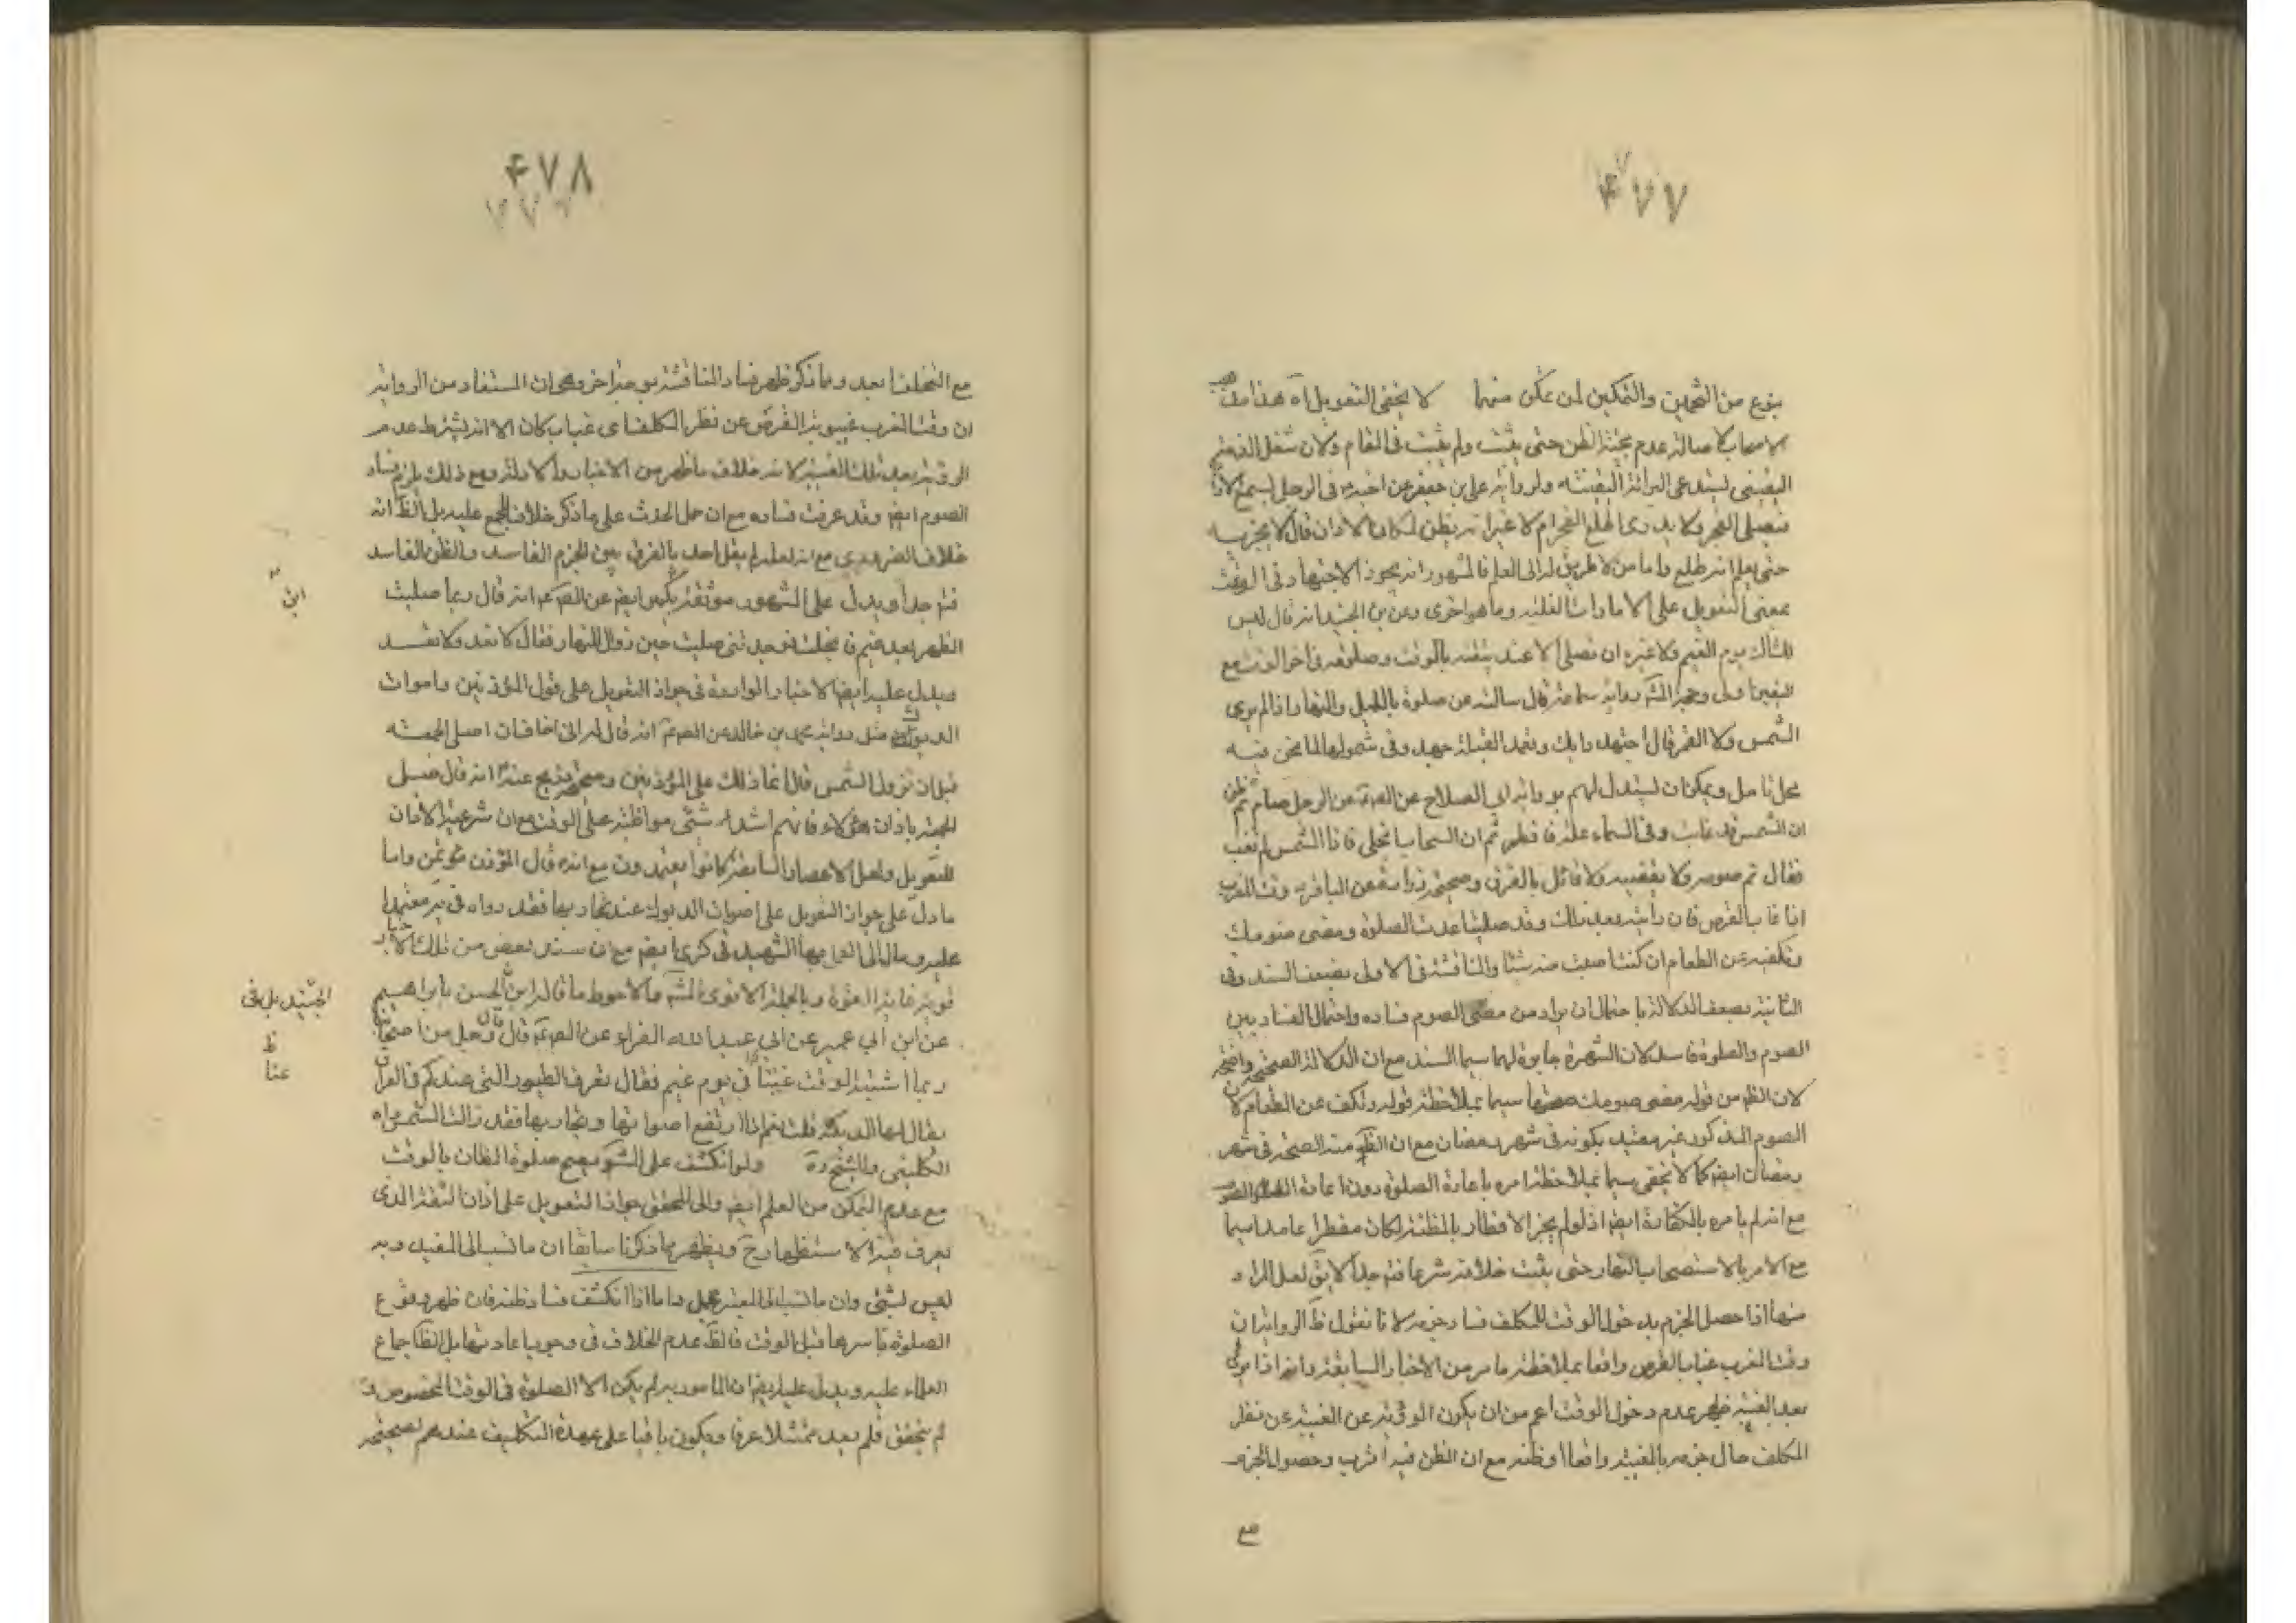 ۴۷۷
بنوع من التخمين والتمكين لمن تمكن منهما لا يخفى التعويل اه هذا مذهب
الاصحاب لاصالة عدم حجية الظن حتى يثبت ولم يثبت في المقام ولان شغل الذمة
اليقيني يستدعى البرائة اليقينية ولرواية على بن جعفر عن اخيه في الرجل يسمع الاذان
فيصلى الفجر ولا يدرى اطلع الفجر ام لا غير انه يظن لمكان الاذان قال لا يجزيه
حتى يعلم انه طلع واما من لا طريق له الى العلم فالمشهور انه يجوز الاجتهاد في الوقت
بمعنى التعويل على الامارات الظنية وما هو احرى وعن بن الجنيد انه قال ليس
للشاك يوم الغيم ولا غيره ان يصلى الا عند يقينه بالوقت وصلوته في اخر الوقت مع
اليقين اولى وحجة المشه رواية سماعة قال سالته عن صلوة بالليل والنهار اذا لم يرى
الشمس ولا القمر قال اجتهد رايك وتعمد القبلة جهدك وفي شمولها لما نحن فيه
محل تامل ويمكن ان يستدل لهم برواية ابى الصلاح عن الصم عن الرجل صام ثم ظن
ان الشمس قد غابت وفي السماء علة فافطر ثم ان السحاب انجلى فاذا الشمس لم تغب
فقال تم صومه ولا يقضيه ولا قائل بالفرق وصحيحة زرارة عن الباقر وقت المغرب
اذا غاب القرص فان رايته بعد ذلك وقد صليت اعدت الصلوة ومضى صومك
وتكف عن الطعام ان كنت اصبت منه شيئا والمناقشة في الاولى بضعف السند وفي
الثانية بضعف الدلالة باحتمال ان يراد من مضى الصوم فساده واحتمال الفساد بين
الصوم والصلوة فاسد لان الشهرة جابرة لهما سيما السند مع ان الدلالة الصحيحة واضحة
لان الظ من قوله مضى صومك صحتها سيما بملاحظة قوله وتكف عن الطعام لان
الصوم المذكور غير مقيد بكونه في شهر رمضان مع ان الظ منه الصحة في شهر
رمضان ايضا كما لا يخفى سيما بملاحظة امره باعادة الصلوة دون اعادة الصوم
مع انه لم يامره بالكفارة ايضا اذ لو لم يجز الافطار بالمظنة لكان مفطرا عامدا سيما
مع الامر بالاستصحاب النهار حتى يثبت خلافه شرعا فتم جدا لا يق لعل المراد
منها اذا حصل الجزم بدخول الوقت للمكلف فساد جزمه لانا نقول ظ الرواية ان
وقت المغرب غياب القرص واقعا بملاحظة ما مر من الاخبار السابقة وانه اذا يرى
بعد الغيبة ظهر عدم دخول الوقت اعم من ان يكون الروية عن الغيبة عن نظر
المكلف حال جزمه بالغيبة واقعا او ظنه مع ان الظن فيه اقرب وحصول الجزم
مع
۴۷۸
مع التخلف ابعد ومما ذكر ظهر فساد المناقشة بوجه اخر وهو ان المستفاد من الرواية
ان وقت المغرب غيبوبة القرص عن نظر المكلف اى غياب كان الا انه يشترط عدم
الروية بعد تلك الغيبة لانه خلاف ما ظهر من الاخبار والادلة ومع ذلك يلزم فساد
الصوم ايضا وقد عرفت فساده مع ان حمل الحدث على ما ذكر خلاف المجمع عليه بل الظ انه
خلاف الضروري مع انه لعله لم يقل احد بالفرق بين الجزم الفاسد والظن الفاسد
فتم جدا ويدل على المشهور موثقة بكير ايضا عن الصم انه قال ربما صليت
الظهر بعد غيم فانجلت فوجدتنى صليت حين زوال النهار فقال لا تعد ولا تعد
ويدل عليه ايضا الاخبار الواردة في جواز التعويل على قول المؤذنين واصوات
الديوك مثل رواية محمد بن خالد عن الصم انه قال له انى اخاف ان اصلى الجمعة
قبل ان تزول الشمس قال انما ذلك على المؤذنين وصحيحة ذريح عنه انه قال صل
الجمعة باذان هؤلاء فانهم اشد شيئ مواظبة على الوقت مع ان شرعية الاذان
للتعويل واهل الاعصار السابقة كانوا يعتمدون مع انه قال المؤذن مؤتمن واما
ما دل على جواز التعويل على اصوات الديوك عند تجاربها فقد رواه في يه معتمدا
عليه ومال الى العمل بها الشهيد في كرى ايضا مع ان سند بعض من تلك الاخبار
قوية غاية القوة وبالجملة الاقوى المشه والاحوط ما قاله ابن الحسن بابراهيم
عن ابن ابي عمير عن ابى عبد الله الفراء عن الصم قال قال رجل من اصحابنا
ربما اشتبه الوقت علينا في يوم غيم فقال تعرف الطيور التى عندكم في العراق
يقال لها الديكة قلت نعم اذا ارتفع اصواتها وتجاربها فقد زالت الشمس رواه
الكلينى والشيخ ره ولو انكشف على الشو يصح صلوة الظان بالوقت
مع عدم التمكن من العلم ايضا والى المحقق جواز التعويل على اذان الثقة الذى
يعرف منه الاستظهار وح ويظهر مما ذكرنا سابقا ان ما نسب الى المفيد وبه
ليس بشئ وان ما نسب الى المعتبر محل واما اذا انكشف فساد ظنه فان ظهر وقوع
الصلوة باسرها قبل الوقت فالظ عدم الخلاف في وجوب اعادتها بل الظ اجماع
العلماء عليه ويدل عليه ايضا ان المامور به لم يكن الا الصلوة في الوقت المخصوص
لم يتحقق فلم يعد ممتثلا عرفا ويكون باقيا على عهدة التكليف عندهم لصحيحة
ابن
الجنيد بل في
ظ
عنا